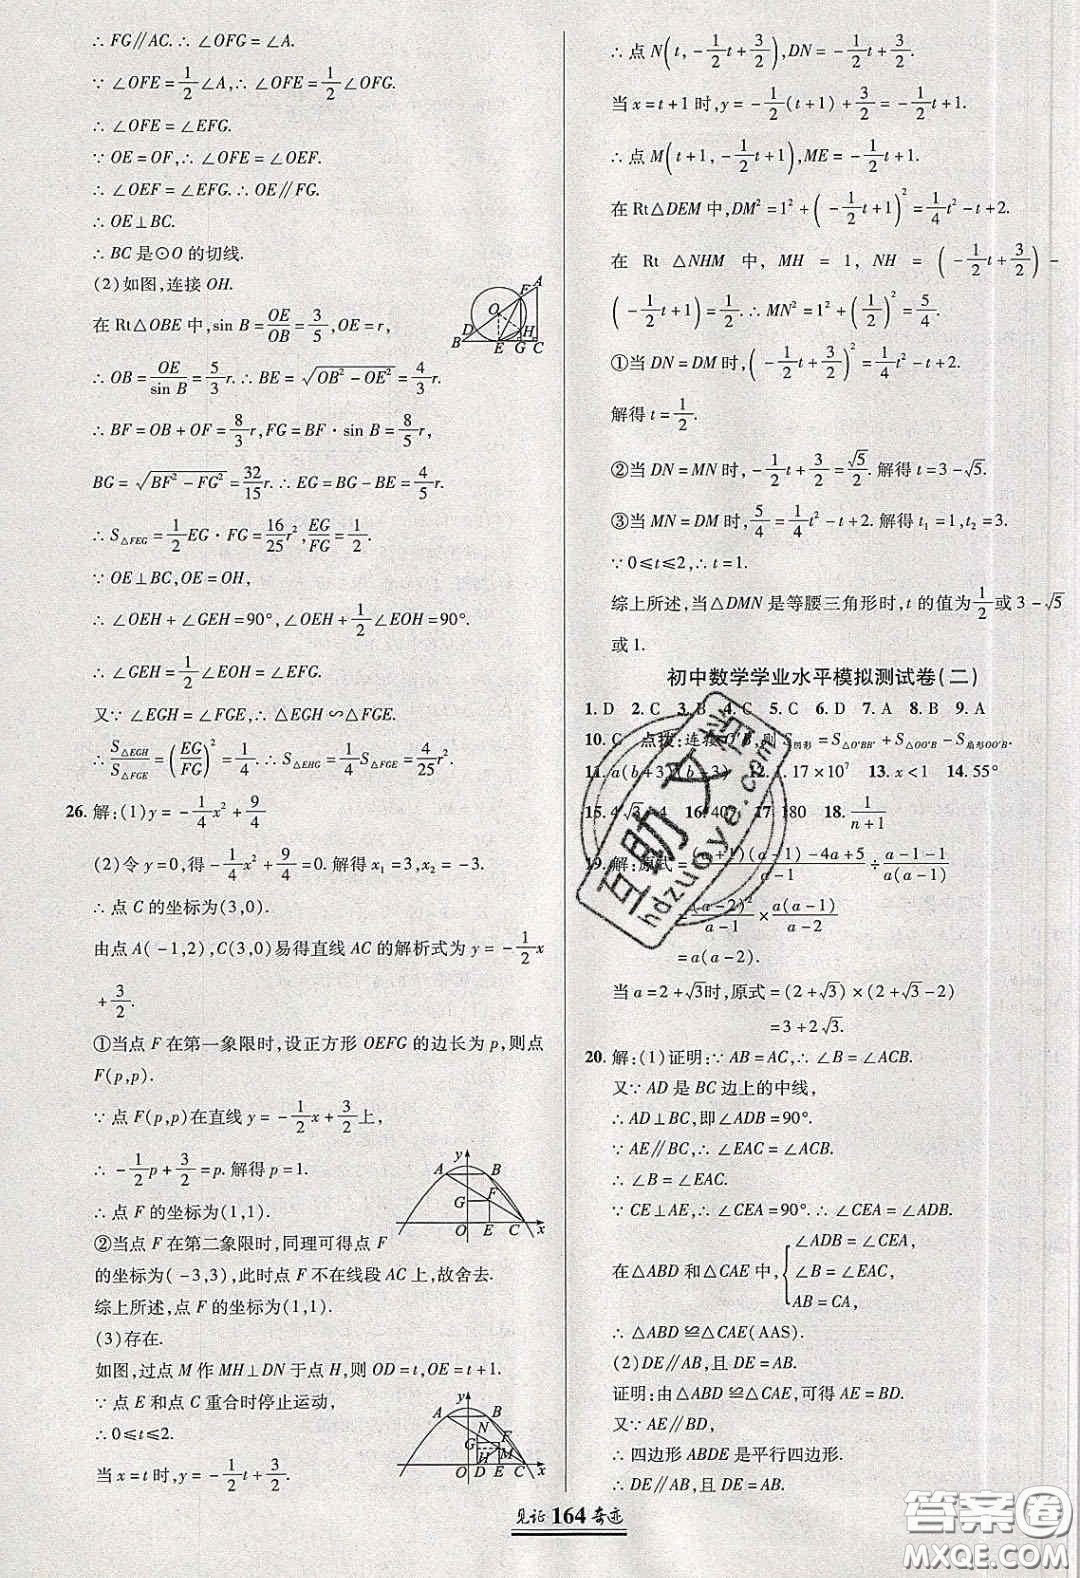 ∴ FG∥AC. ∴ ∠OFG = ∠A.
∵ ∠OFE = 1/2∠A, ∴ ∠OFE = 1/2∠OFG.
∴ ∠OFE = ∠EFG.
∵ OE = OF, ∴ ∠OFE = ∠OEF.
∴ ∠OEF = ∠EFG. ∴ OE∥FG.
∴ OE⊥BC.
∴ BC 是⊙O 的切线.
(2)如图,连接 OH.
在 Rt△OBE 中, sin B = OE/OB = 3/5, OE = r,
∴ OB = OE/sin B = 5/3 r. ∴ BE = √(OB² − OE²) = 4/3 r.
∴ BF = OB + OF = 8/3 r, FG = BF · sin B = 8/5 r,
BG = √(BF² − FG²) = 32/15 r. ∴ EG = BG − BE = 4/5 r.
∴ S△FEG = 1/2 EG · FG = 16/25 r², EG/FG = 1/2.
∵ OE⊥BC, OE = OH,
∴ ∠OEH + ∠GEH = 90°, ∠OEH + 1/2∠EOH = 90°.
∴ ∠GEH = 1/2∠EOH = ∠EFH.
又∵ ∠EGH = ∠FGE, ∴ △EGH∽△FGE.
∴ S△EGH/S△FGE = (EG/FG)² = 1/4. ∴ S△EHG = 1/4 S△FGE = 4/25 r².
26. 解:(1) y = −1/4 x² + 9/4
(2)令 y = 0, 得 −1/4 x² + 9/4 = 0. 解得 x₁ = 3, x₂ = −3.
∴ 点 C 的坐标为(3,0).
由点 A(−1,2), C(3,0)易得直线 AC 的解析式为 y = −1/2 x
+ 3/2.
①当点 F 在第一象限时,设正方形 OEFG 的边长为 p,则点
F(p,p).
∵ 点 F(p,p)在直线 y = −1/2 x + 3/2 上,
∴ −1/2 p + 3/2 = p. 解得 p = 1.
∴ 点 F 的坐标为(1,1).
②当点 F 在第二象限时,同理可得点 F
的坐标为(−3,3),此时点 F 不在线段 AC 上,故舍去.
综上所述,点 F 的坐标为(1,1).
(3)存在.
如图,过点 M 作 MH⊥DN 于点 H,则 OD = t, OE = t + 1.
∵ 点 E 和点 C 重合时停止运动,
∴ 0 ≤ t ≤ 2.
当 x = t 时, y = −1/2 t + 3/2.
∴ 点 N(t, −1/2 t + 3/2), DN = −1/2 t + 3/2.
当 x = t + 1 时, y = −1/2(t + 1) + 3/2 = −1/2 t + 1.
∴ 点 M(t + 1, −1/2 t + 1), ME = −1/2 t + 1.
在 Rt△DEM 中, DM² = 1² + (−1/2 t + 1)² = 1/4 t² − t + 2.
在 Rt △NHM 中, MH = 1, NH = (−1/2 t + 3/2) −
(−1/2 t + 1) = 1/2. ∴ MN² = 1² + (1/2)² = 5/4.
①当 DN = DM 时, (−1/2 t + 3/2)² = 1/4 t² − t + 2.
解得 t = 1/2.
②当 DN = MN 时, −1/2 t + 3/2 = √5/2. 解得 t = 3 − √5.
③当 MN = DM 时, 5/4 = 1/4 t² − t + 2. 解得 t₁ = 1, t₂ = 3.
∵ 0 ≤ t ≤ 2, ∴ t = 1.
综上所述,当△DMN 是等腰三角形时, t 的值为 1/2 或 3 − √5
或 1.
初中数学学业水平模拟测试卷(二)
1. D 2. C 3. B 4. C 5. C 6. D 7. A 8. B 9. A
10. C 点拨:连接 O′B,则 S阴影 = S△O′BB′ + S△OO′B − S扇形OO′B.
11. a(b+3)(b−3) 12. 1.17×10⁷ 13. x<1 14. 55°
15. 4√3 4 16. 407 17. 180 18. 1/(n+1)
19. 解:原式 = [(a+1)(a−1)−4a+5]/(a−1) ÷ (a−1−1)/(a(a−1))
= (a−2)²/(a−1) × a(a−1)/(a−2)
= a(a−2).
当 a = 2+√3时,原式 = (2+√3)×(2+√3−2)
= 3+2√3.
20. 解:(1)证明:∵ AB = AC, ∴ ∠B = ∠ACB.
又∵ AD 是 BC 边上的中线,
∴ AD⊥BC, 即∠ADB = 90°.
∵ AE∥BC, ∴ ∠EAC = ∠ACB.
∴ ∠B = ∠EAC.
∵ CE⊥AE, ∴ ∠CEA = 90°. ∴ ∠CEA = ∠ADB.
在△ABD 和△CAE 中, { ∠ADB = ∠CEA,
∠B = ∠EAC,
AB = CA,
∴ △ABD≌△CAE(AAS).
(2)DE∥AB, 且 DE = AB.
证明:由△ABD≌△CAE, 可得 AE = BD.
又∵ AE∥BD,
∴ 四边形 ABDE 是平行四边形.
∴ DE∥AB, 且 DE = AB.
见证 164 奇迹
互助文档
hdzuoye.com
答案圈
MXQE.COM